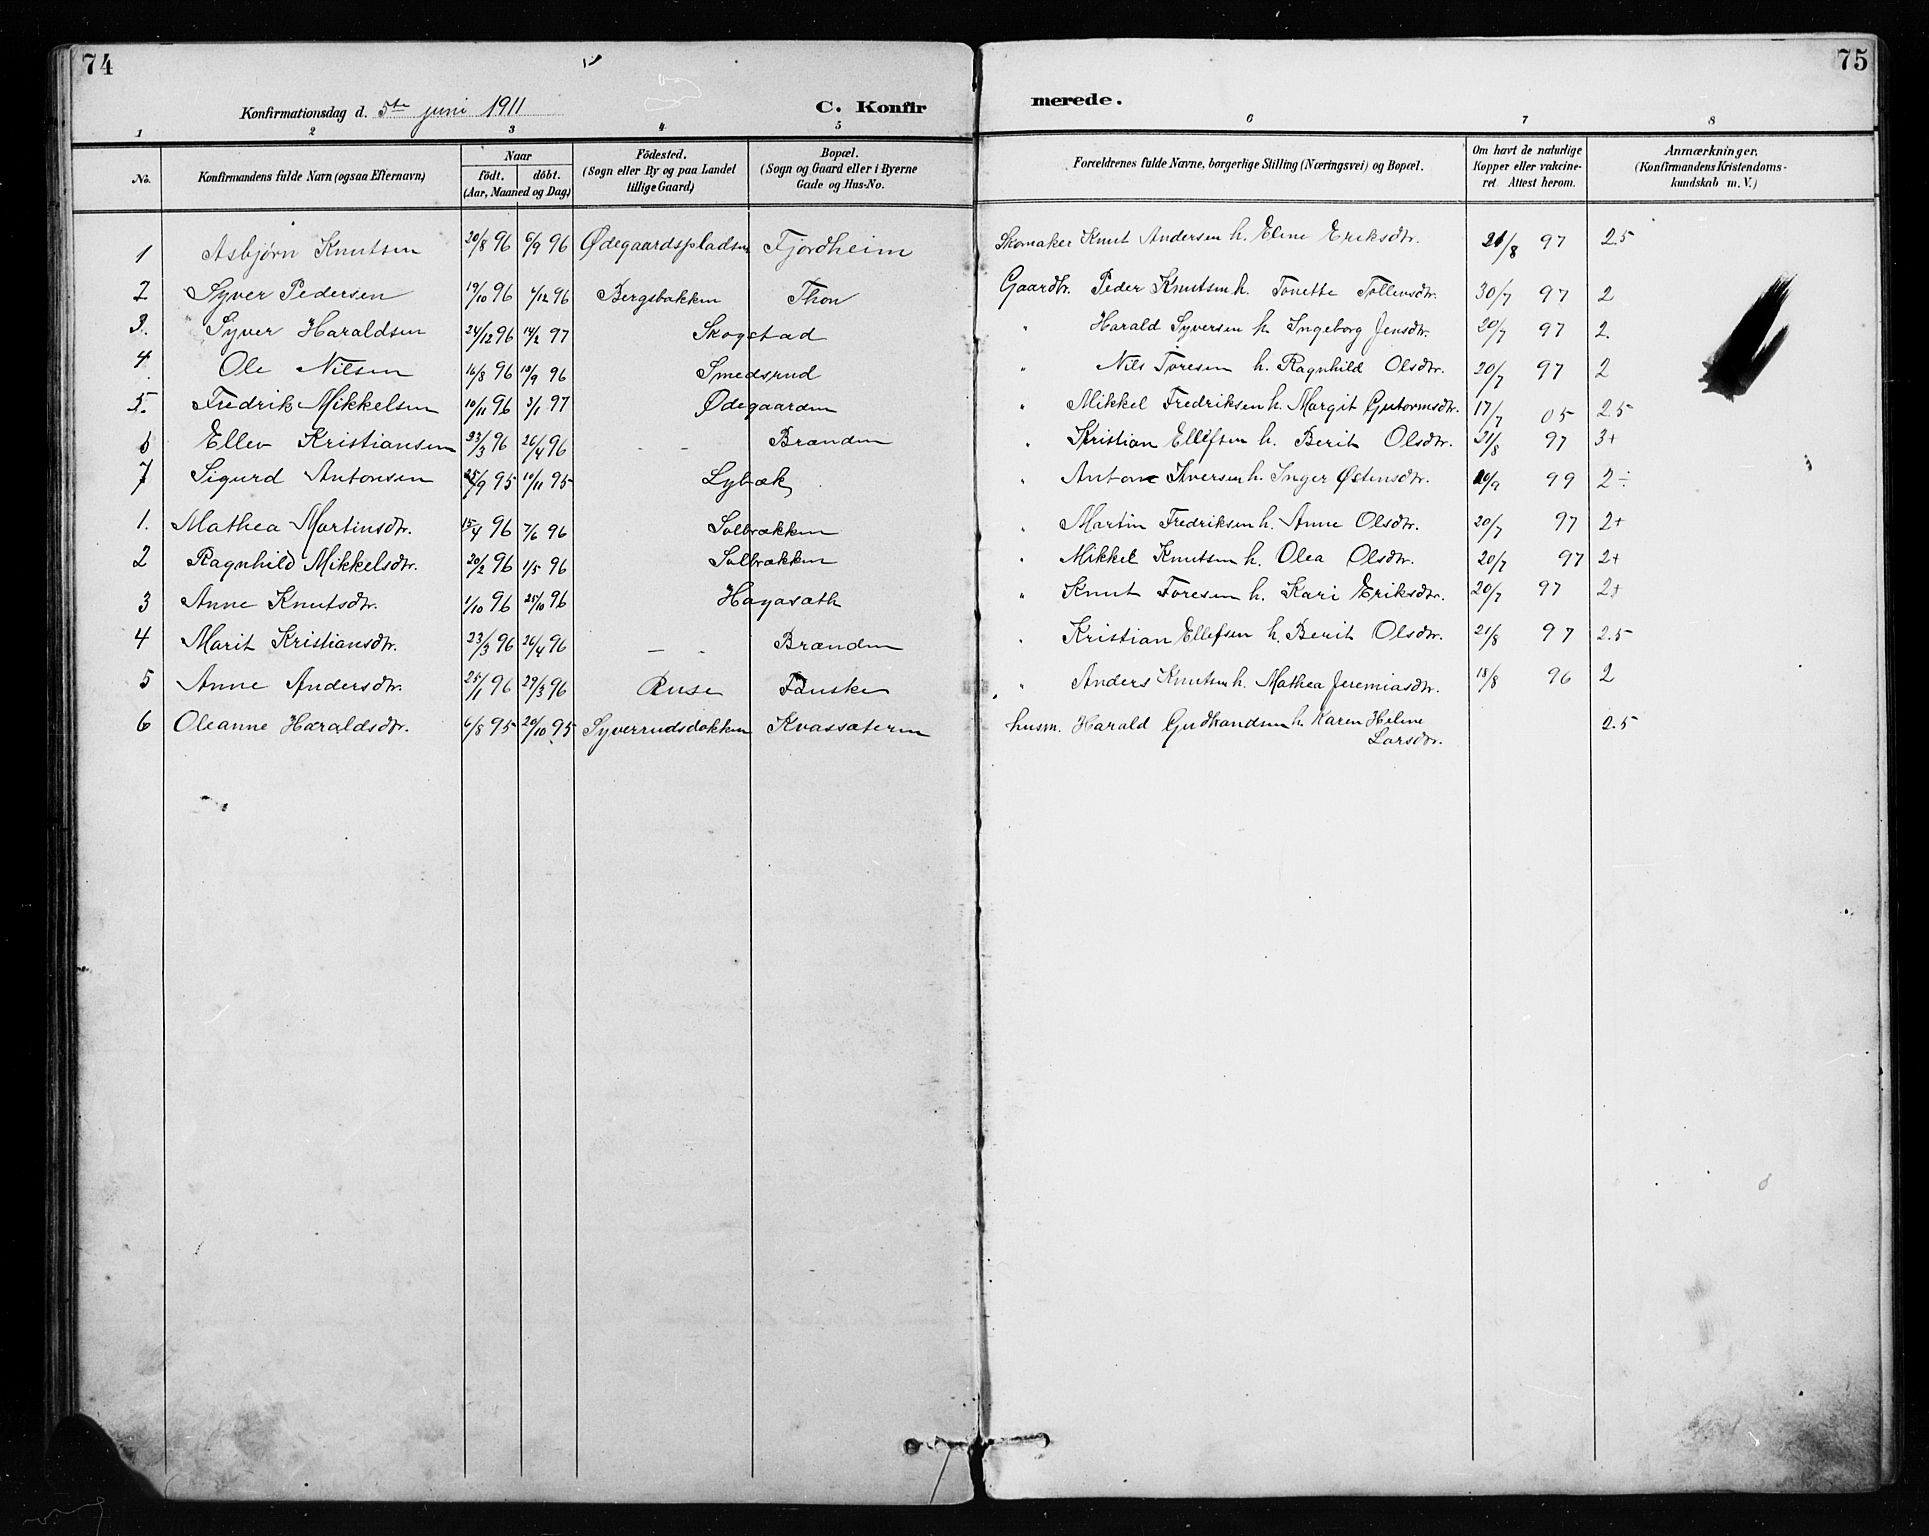 74
75
Konfirmationsdag d. 5te juni 1911
C. Konfirmerede.
1 2 3 4 5 6 7 8
No. Konfirmandens fulde Navn (ogsaa Efternavn) Naar Födt. döbt. (Aar, Maaned og Dag) Födested. (Sogn eller By og paa Landet tillige Gaard) Bopæl. (Sogn og Gaard eller i Byerne Gade og Hus-No. Forældrenes fulde Navne, borgerlige Stilling (Næringsvei) og Bopæl. Om havt de naturlige Kopper eller vakcineret Attest herom. Anmærkninger, (Konfirmandens Kristendomskundskab m. V.)
1 Asbjørn Knutsen 20/8 96 6/9 96 Ødegaardspladsen Fjordheim Skomaker Knut Andersen h. Eline Eriksdtr. 21/8 97 2.5
2 Syver Pedersen 19/10 96 /12 96 Bergsbakken Thon Gaardbr. Peder Knutsen h. Tonette Tollevsdtr. 30/7 97 2
3. Syver Haraldsen 24/12 96 14/2 97 Skogstad " Harald Syversen h. Ingeborg Jensdtr. 20/7 97 2.
4 Ole Nilsen 16/8 96 18/9 96 Smedsrud " Nils Toresen h. Ragnhild Olsdtr. 20/7 97 2
5. Fredrik Mikkelsen 10/11 96 3/1 97 Ødegaarden " Mikkel Fredriksen h. Margit Gutormsdtr. 17/7 05 2.5
6 Ellev Kristiansen 23/3 96 26/4 96 - - Branden " Kristian Ellefsen h. Berit Olsdtr. 21/8 97 3+
7 Sigurd Antonsen 25/9 95 10/11 95 Lybæk " Anton Iversen h. Inger Østensdtr. 20/9 99 2÷
1. Mathea Martinsdtr. 15/4 96 7/6 96 Solbrækken " Martin Fredriksen h. Anne Olsdtr. 20/7 97 2+
2 Ragnhild Mikkelsdtr. 20/2 96 1/5 96 Solbrækken " Mikkel Knutsen h. Olea Olsdtr. 20/7 97 2+
3 Anne Knutsdtr. 1/10 96 25/10 96 Hagasæth " Knut Toresen h. Kari Eriksdtr. 20/7 97 2+
4 Marit Kristiansdtr. 23/3 96 26/4 96 - - Branden " Kristian Ellefsen h. Berit Olsdtr. 21/8 97 2.5
5 Anne Andersdtr. 25/1 96 29/3 96 Ruse Fauske " Anders Knutsen h. Mathea Jeremiasdtr. 18/8 96 2
6 Oleanne Haraldsdtr. 6/8 95 20/10 95 Syverrudsbakken Kvassæteren husm. Harald Gudbrandsen h. Karen Heline Larsdtr. 2.5